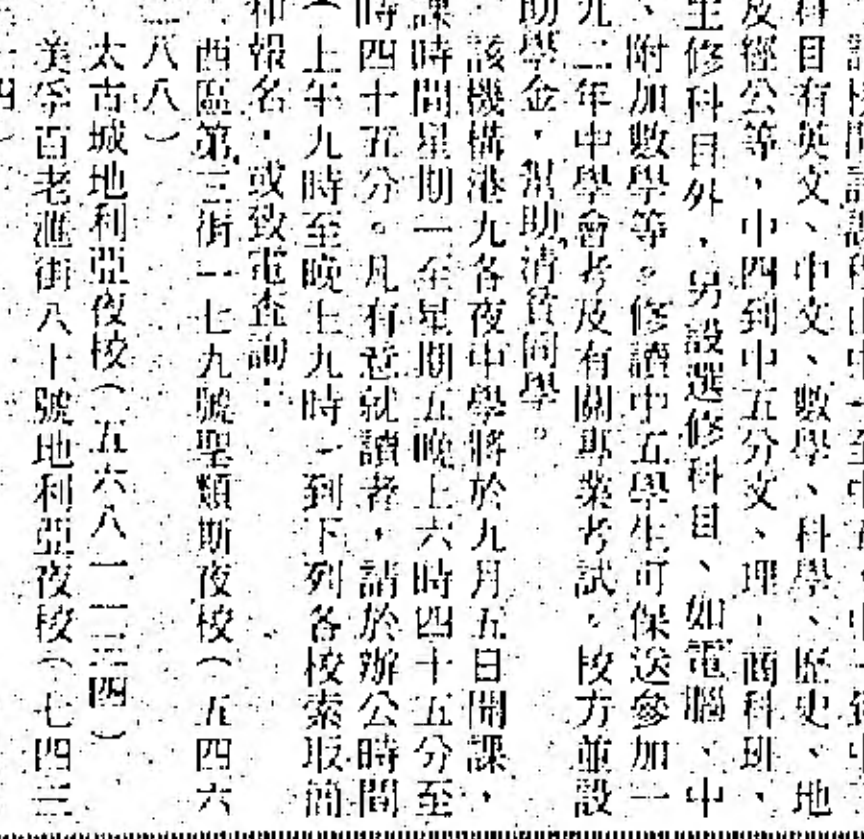 科目有英文、中文、數學、科學、歷史、地
及經公等，中四到中五分文、理、商科班、
主修科目外，另設選修科目、如電腦、中
、附加數學等。修讀中五學生可保送參加一
九二年中學會考及有關專業考試。校方並設
助學金，幫助清貧同學。
該機構港九各夜中學將於九月五日開課，
課時間星期一至星期五晚上六時四十五分至
時四十五分。凡有意就讀者，請於辦公時間
（上午九時至晚上九時）到下列各校索取簡
和報名，或致電查詢：
西區第三街一七九號聖類斯夜校（五四六
八八）
太古城地利亞夜校（五六八一一三四）
美孚百老滙街八十號地利亞夜校（七四三
四）